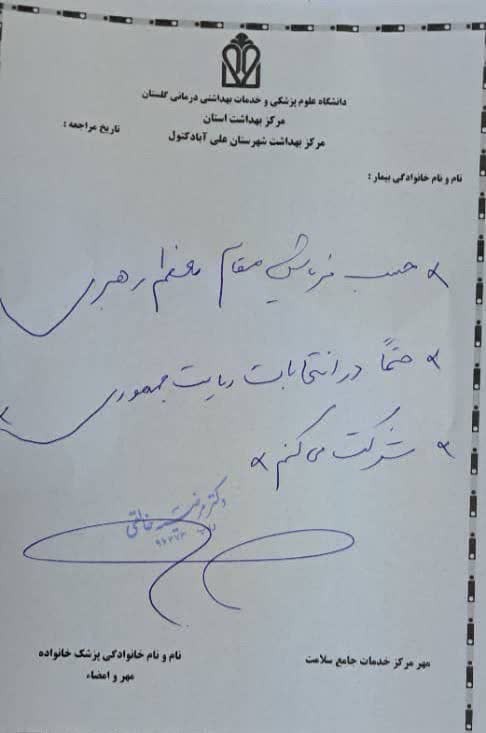 دانشگاه علوم پزشکی و خدمات بهداشتی درمانی گلستان
مرکز بهداشت استان
مرکز بهداشت شهرستان علی آبادکتول
تاریخ مراجعه :
نام و نام خانوادگی بیمار :
حسب فرمایش مقام معظم رهبری
حتماً در انتخابات ریاست جمهوری
شرکت می کنم
دکتر
نام و نام خانوادگی پزشک خانواده
مهر و امضاء
مهر مرکز خدمات جامع سلامت